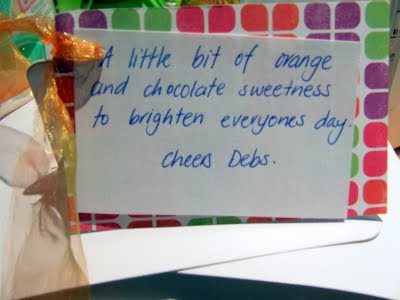 A little bit of orange
and chocolate sweetness
to brighten everyones day.
Cheers Debs.